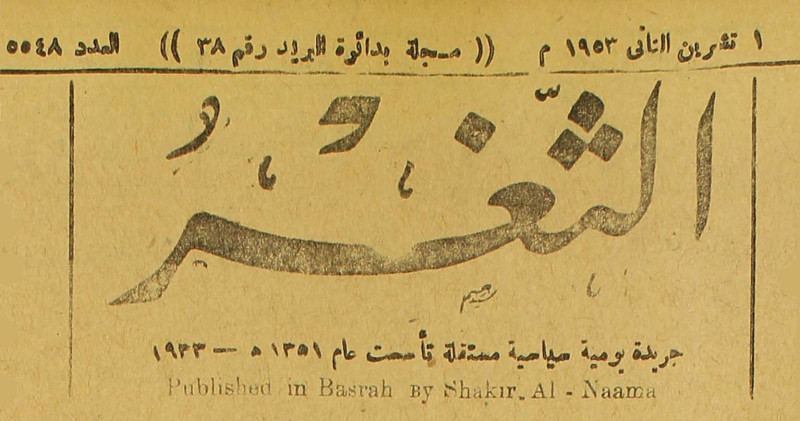 ١ تشرين الثانى ١٩٥٣ م (( مسجلة بدائرة البريد رقم ٣٨ )) العدد ٥٥٤٨
الثّغر
جريدة يومية سياسية مستقلة تأسست عام ١٣٥١ ه — ١٩٣٣
Published in Basrah By Shakir. Al - Naama